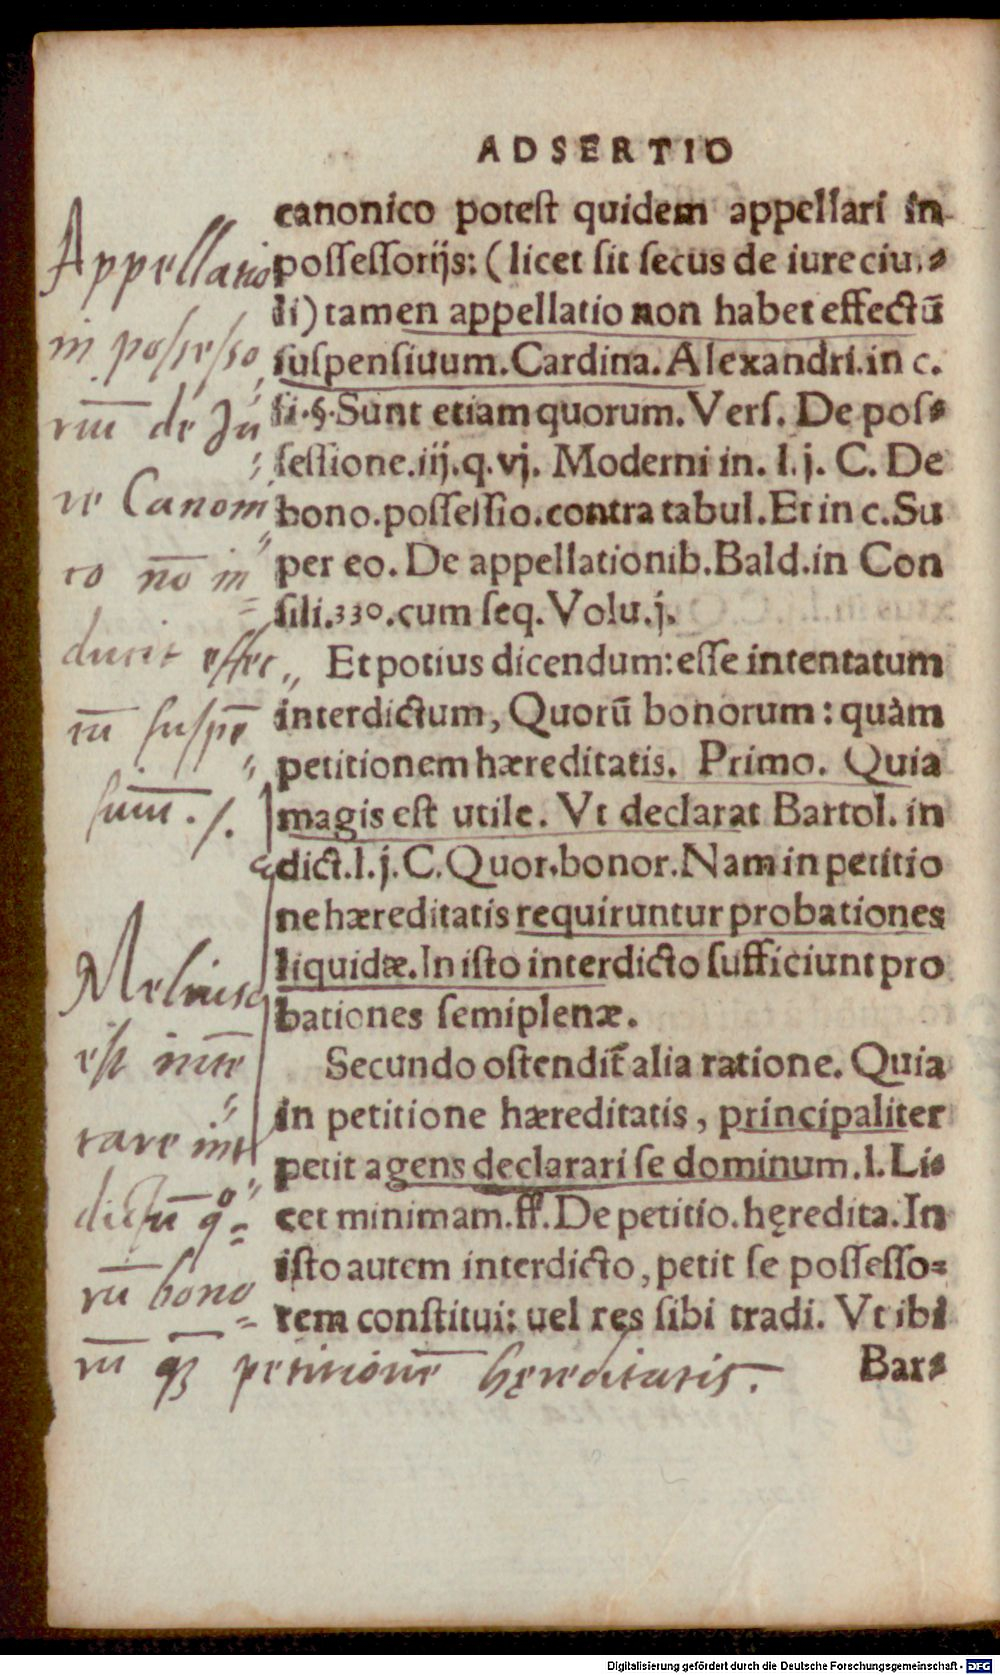 ADSERTIO
canonico potest quidem appellari in
possessorijs: (licet sit secus de iure ciu.⸗
li) tamen appellatio non habet effectū
suspensiuum. Cardina. Alexandri. in c.
si. §. Sunt etiam quorum. Vers. De pos⸗
sessione. iij. q. vj. Moderni in. l. j. C. De
bono. possessio. contra tabul. Et in c. Su
per eo. De appellationib. Bald. in Con
sili. 330. cum seq. Volu. j.
Et potius dicendum: esse intentatum
interdictum, Quorū bonorum: quàm
petitionem hæreditatis. Primo. Quia
magis est utile. Vt declarat Bartol. in
dict. l. j. C. Quor. bonor. Nam in petitio
ne hæreditatis requiruntur probationes
liquidæ. In isto interdicto sufficiunt pro
bationes semiplenæ.
Secundo ostendit̃ alia ratione. Quia
in petitione hæreditatis, principaliter
petit agens declarari se dominum. l. Li⸗
cet minimam. ff. De petitio. hęredita. In
isto autem interdicto, petit se possesso⸗
rem constitui: uel res sibi tradi. Vt ibi
Bar⸗
Appellatio
in possesso
riū de Ju
re Canoni
co nō in
ducit effec
tū suspē
siuū. /.
Melius
est intē
tare int
dictū qo
rū bono
rū qȝ petitionē hęreditatis.
Digitalisierung gefördert durch die Deutsche Forschungsgemeinschaft - DFG